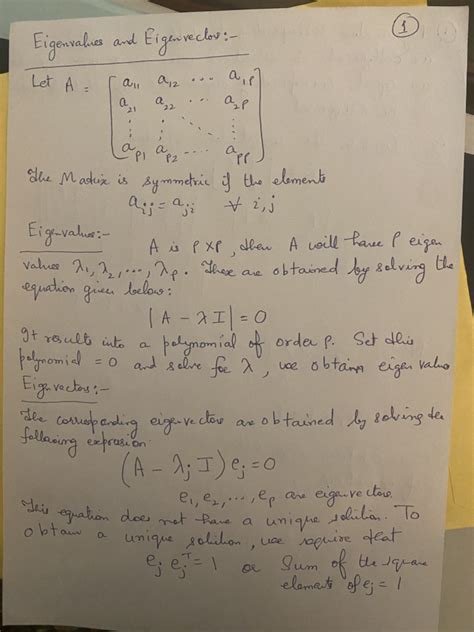 1
Eigenvalues and Eigenvectors:-
Let A = [ a11 a12 ... a1p
a21 a22 ... a2p
⋮ ⋮ ⋱ ⋮
ap1 ap2 .... app ]
The Matrix is symmetric if the elements
aij = aji ∀ i,j
Eigenvalues:-
A is p×p, then A will have p eigen
values λ1, λ2, ..., λp. These are obtained by solving the
equation given below:
|A - λI| = 0
It results into a polynomial of order p. Set this
polynomial = 0 and solve for λ, we obtain eigen value
Eigvectors:-
The corresponding eigenvectors are obtained by solving the
following expression
(A - λj I) ej = 0
e1, e2, ..., ep are eigenvectors
This equation does not have a unique solution. To
obtain a unique solution, we require that
ej ej^T = 1 or Sum of the square
elements of ej = 1